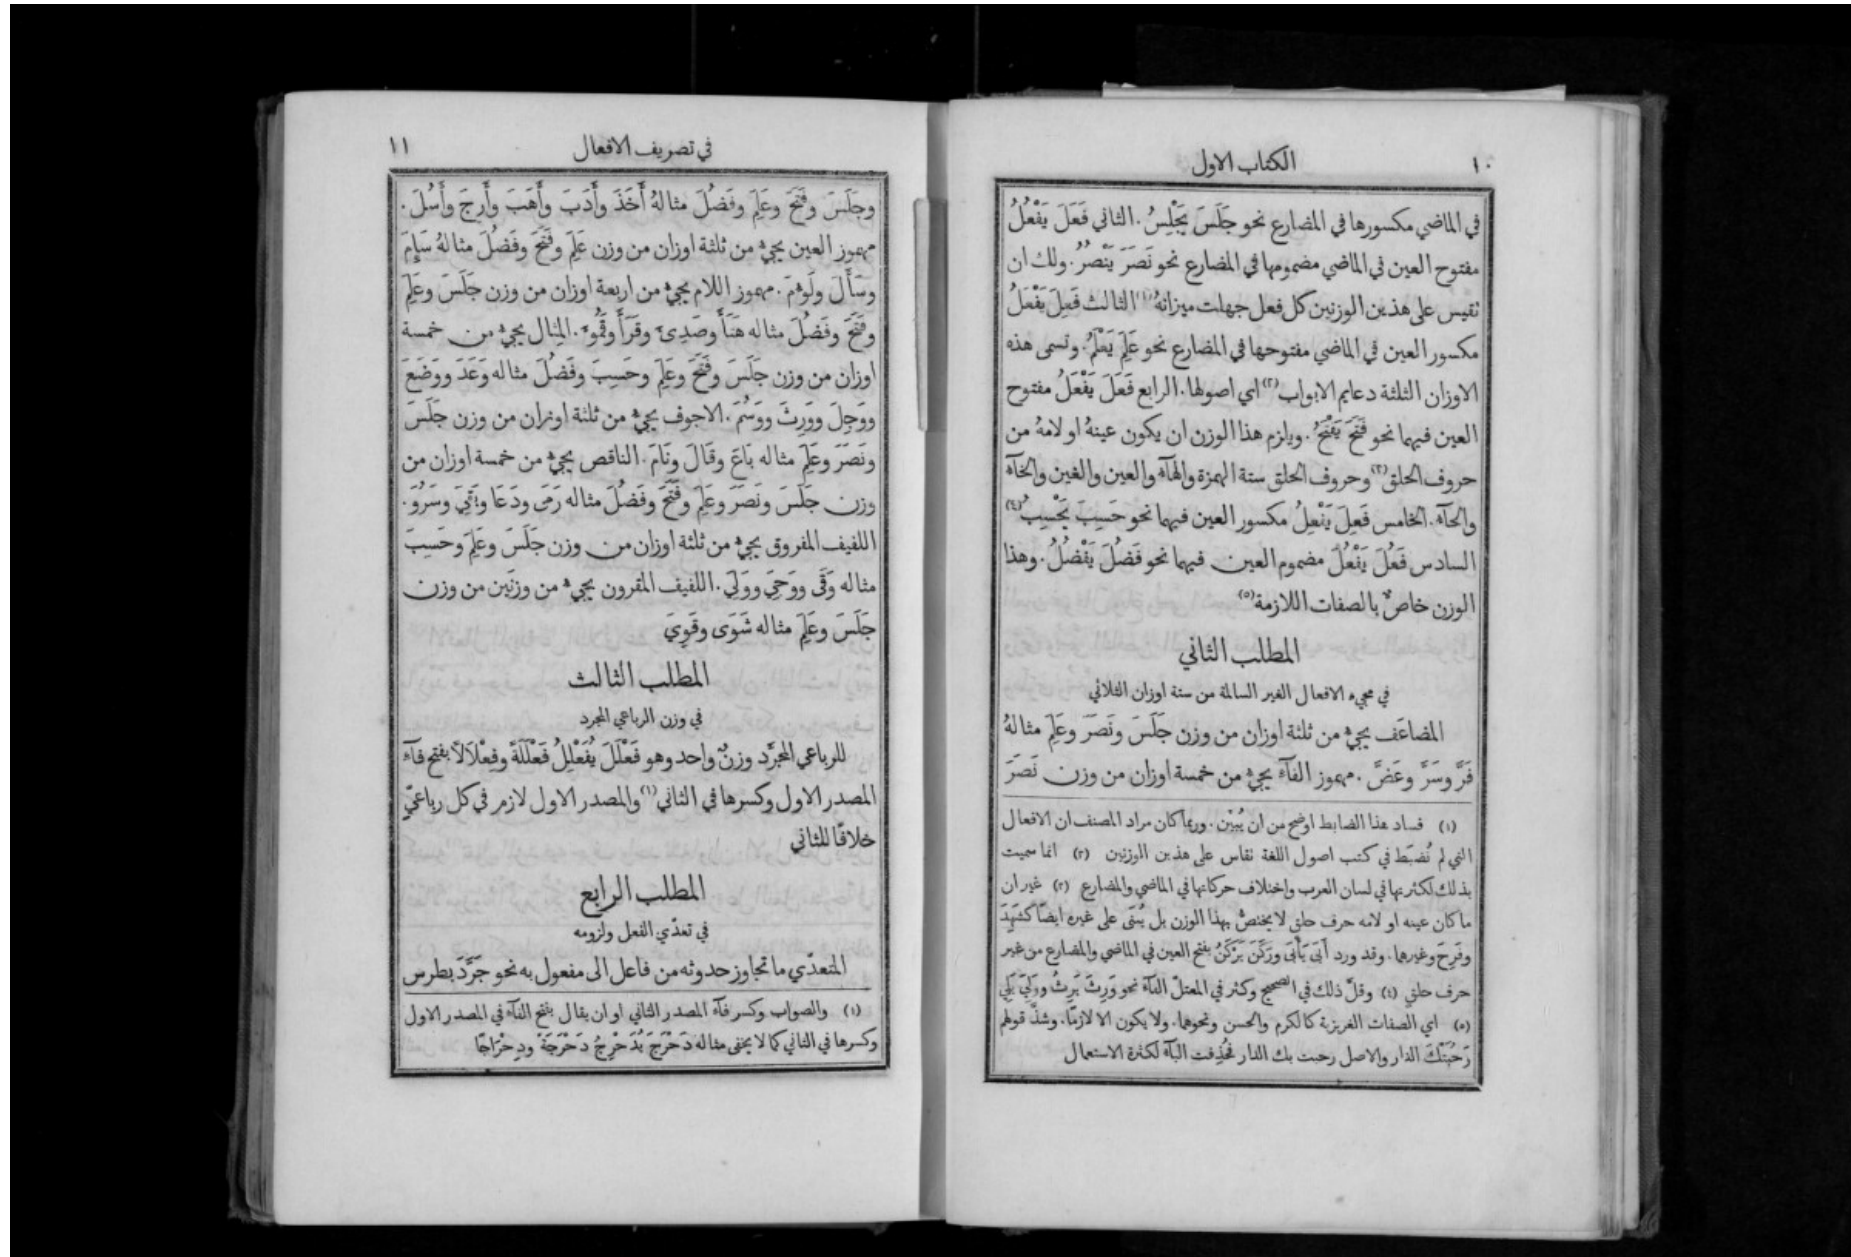 ١٠
الكتاب الاول
في الماضي مكسورها في المضارع نحو جَلَسَ يَجْلِسُ. الثاني فَعَلَ يَفْعُلُ
مفتوح العين في الماضي مضمومها في المضارع نحو نَصَرَ يَنْصُرُ. ولك ان
تقيس على هذين الوزنين كل فعل جهلت ميزانهُ (١) الثالث فَعِلَ يَفْعَلُ
مكسور العين في الماضي مفتوحها في المضارع نحو عَلِمَ يَعْلَمُ. وتسمى هذه
الاوزان الثلثة دعايم الابواب (٢) اي اصولها. الرابع فَعَلَ يَفْعَلُ مفتوح
العين فيهما نحو فَتَحَ يَفْتَحُ. ويلزم هذا الوزن ان يكون عينهُ او لامهُ من
حروف الحلق (٣) وحروف الحلق ستة الهمزة والهآء والعين والغين والخآء
والحآء. الخامس فَعِلَ يَفْعِلُ مكسور العين فيهما نحو حَسِبَ يَحْسِبُ (٤)
السادس فَعُلَ يَفْعُلُ مضموم العين فيهما نحو فَضُلَ يَفْضُلُ. وهذا
الوزن خاصٌ بالصفات اللازمة (٥)
المطلب الثاني
في مجيء الافعال الغير السالمة من ستة اوزان الثلاثي
المضاعَف يجيءُ من ثلثة اوزان من وزن جَلَسَ ونَصَرَ وعَلِمَ مثالهُ
فَرَّ وسَرَّ وعَضَّ. مهموز الفآء يجيءُ من خمسة اوزان من وزن نَصَرَ
(١) فساد هذا الضابط اوضح من ان يُبيَّن. وربما كان مراد المصنف ان الافعال
التي لم تُضبَط في كتب اصول اللغة تقاس على هذين الوزنين (٢) انما سميت
بذلك لكثرتها في لسان العرب واختلاف حركاتها في الماضي والمضارع (٣) غير ان
ما كان عينه او لامه حرف حلق لا يختصُّ بهذا الوزن بل يُبنَى على غيره ايضًا كشَهِدَ
وفَرِحَ وغيرها. وقد ورد أَبَى يَأْبَى ورَكَنَ يَرْكَنُ بفتح العين في الماضي والمضارع من غير
حرف حلقٍ (٤) وقلَّ ذلك في الصحيح وكثر في المعتلّ الفآء نحو وَرِثَ يَرِثُ ووَلِيَ يَلِي
(٥) اي الصفات الغريزية كالكرم والحسن ونحوهما. ولا يكون الا لازمًا. وشذَّ قولهم
رَحُبَتْكَ الدار والاصل رحبت بك الدار فحُذِفت البآء لكثرة الاستعمال
في تصريف الافعال
١١
وجَلَسَ وفَتَحَ وعَلِمَ وفَضُلَ مثالهُ أَخَذَ وأَدَبَ وأَهَبَ وأَرِجَ وأَسُلَ.
مهموز العين يجيءُ من ثلثة اوزان من وزن عَلِمَ وفَتَحَ وفَضُلَ مثالهُ سَئِمَ
وسَأَلَ ولَوءُمَ. مهموز اللام يجيءُ من اربعة اوزان من وزن جَلَسَ وعَلِمَ
وفَتَحَ وفَضُلَ مثاله هَنَأَ وصَدِئَ وقَرَأَ وقَمُوءَ. المِثال يجيءُ من خمسة
اوزان من وزن جَلَسَ وفَتَحَ وعَلِمَ وحَسِبَ وفَضُلَ مثاله وَعَدَ ووَضَعَ
ووَجِلَ ووَرِثَ ووَسُمَ. الاجوف يجيءُ من ثلثة اوزان من وزن جَلَسَ
ونَصَرَ وعَلِمَ مثاله بَاعَ وقَالَ ونَامَ. الناقص يجيءُ من خمسة اوزان من
وزن جَلَسَ ونَصَرَ وعَلِمَ وفَتَحَ وفَضُلَ مثاله رَمَى ودَعَا وبَقِيَ وسَرُوَ.
اللفيف المفروق يجيءُ من ثلثة اوزان من وزن جَلَسَ وعَلِمَ وحَسِبَ
مثاله وَقَى ووَجِيَ ووَلِيَ. اللفيف المقرون يجيءُ من وزنَين من وزن
جَلَسَ وعَلِمَ مثاله شَوَى وقَوِيَ
المطلب الثالث
في وزن الرباعي المجرد
للرباعي المجرَّد وزنٌ واحد وهو فَعْلَلَ يُفَعْلِلُ فَعْلَلَةً وفِعْلَالًا بفتح فآء
المصدر الاول وكسرها في الثاني (١) والمصدر الاول لازم في كل رباعيٍّ
خلافًا للثاني
المطلب الرابع
في تعدّي الفعل ولزومه
المتعدّي ما تجاوز حدوثه من فاعل الى مفعول به نحو جَرَّدَ بطرس
(١) والصواب وكسر فآء المصدر الثاني او ان يقال بفتح الفآء في المصدر الاول
وكسرها في الثاني كما لا يخفى مثاله دَحْرَجَ يُدَحْرِجُ دَحْرَجَةً ودِحْرَاجًا